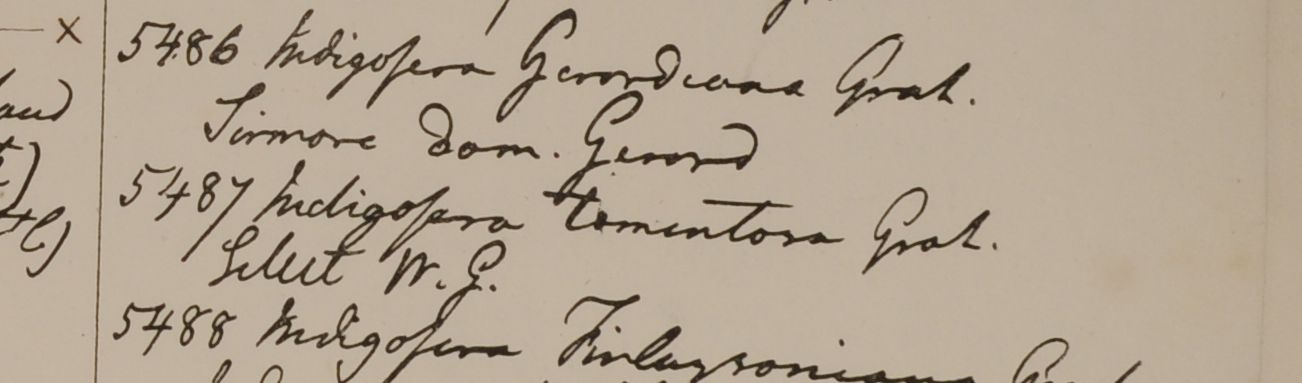 5486 Indigofera Gerardiana Grah.
Sirmore Dom. Gerard
5487 Indigofera tomentosa Grah.
Silhet W. G.
5488 Indigofera Finlaysoniana